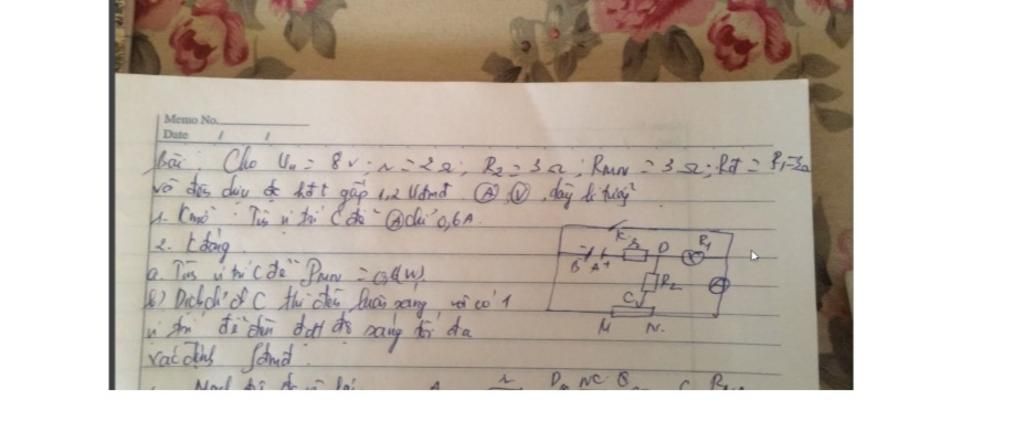 Memo No.
Date / /
Bài. Cho Un = 8V; r = 2Ω; R2 = 3Ω; RMN = 3Ω; Rđ = R1 = 3Ω
và đèn chịu đc hđt gấp 1,2 Uđmđ. (A), (V), dây lí tưởng
1. K mở. Tìm vị trí C để (A) chỉ 0,6A.
2. K đóng
a. Tìm vị trí C để PMN = (W).
b) Dịch C thì đèn luôn sáng và có 1
vị trí để đèn đạt độ sáng tối đa
xác định Pđmđ.
K
B A+ D R1
R2
C A
M N.